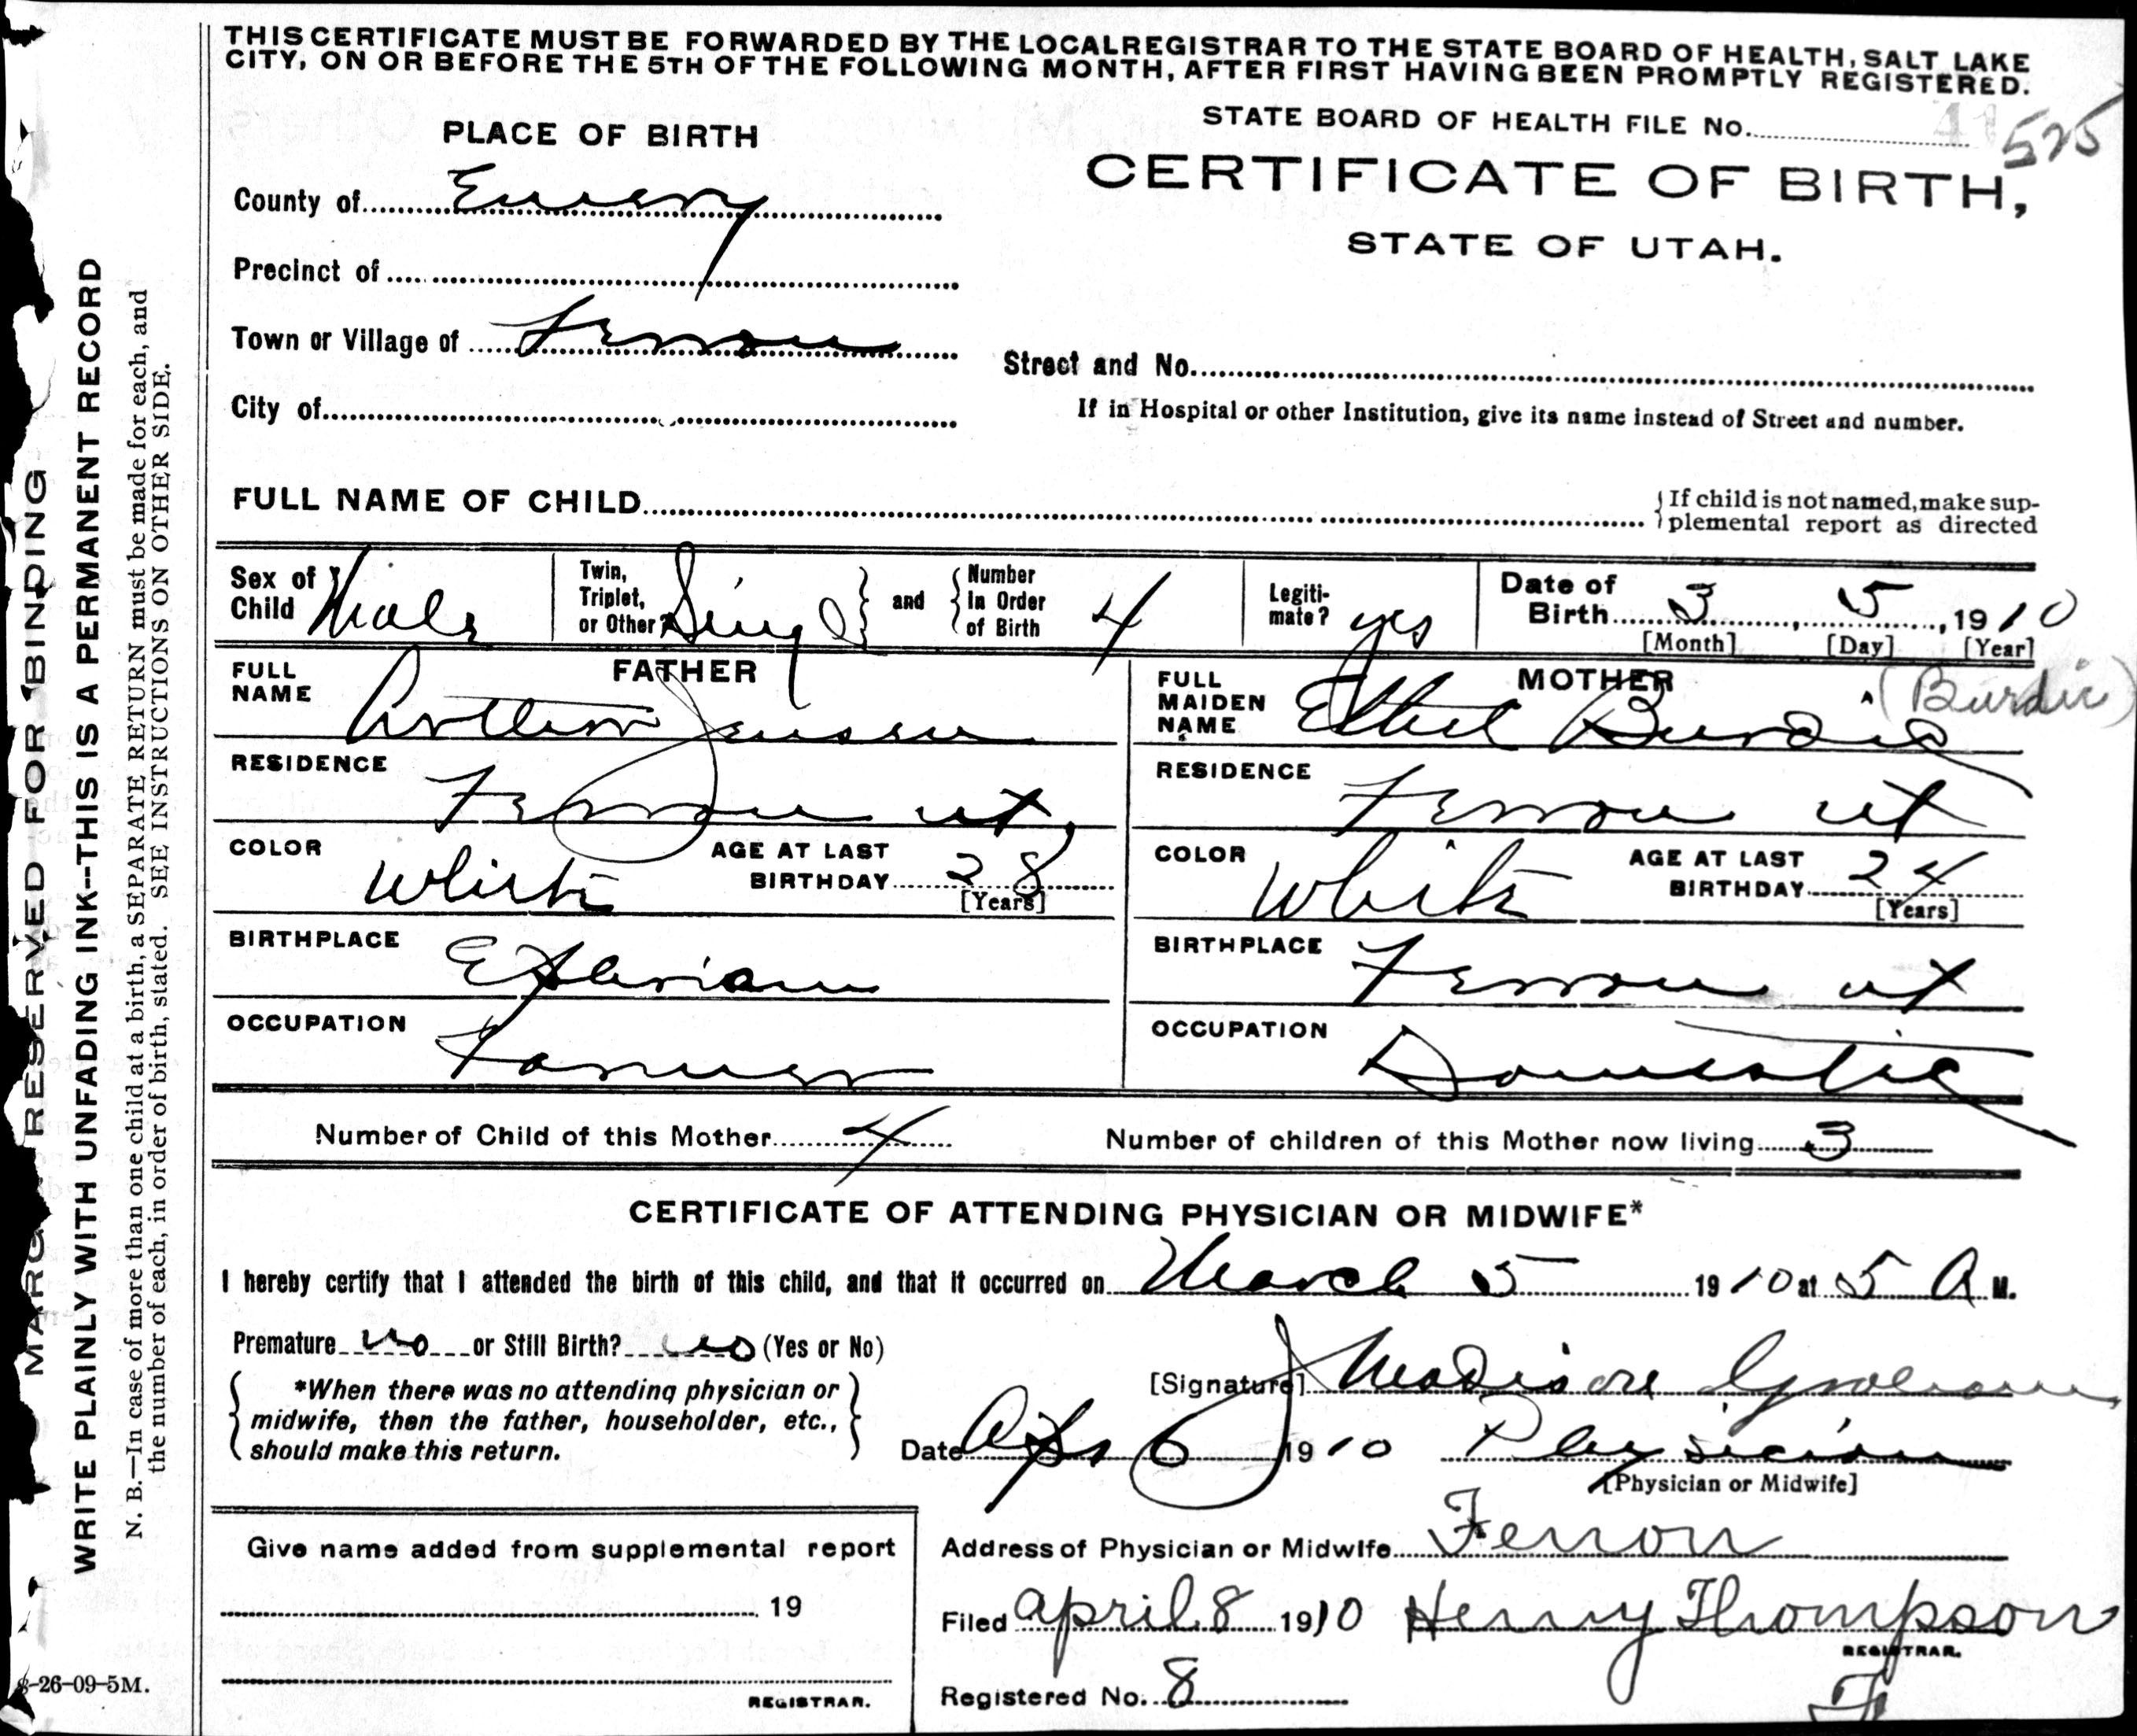 THIS CERTIFICATE MUST BE FORWARDED BY THE LOCAL REGISTRAR TO THE STATE BOARD OF HEALTH, SALT LAKE
CITY, ON OR BEFORE THE 5TH OF THE FOLLOWING MONTH, AFTER FIRST HAVING BEEN PROMPTLY REGISTERED.
STATE BOARD OF HEALTH FILE No. 525
PLACE OF BIRTH
CERTIFICATE OF BIRTH,
STATE OF UTAH.
County of Emery
Precinct of
Town or Village of Ferron
Street and No.
City of
If in Hospital or other Institution, give its name instead of Street and number.
FULL NAME OF CHILD
If child is not named, make sup-
plemental report as directed
Sex of Child Male
Twin, Triplet, or Other Singl and Number In Order of Birth 4
Legiti-mate? yes
Date of Birth 3 5, 1910
[Month] [Day] [Year]
FATHER
FULL NAME Jensen
RESIDENCE Ferron ut,
COLOR White
AGE AT LAST BIRTHDAY 28
[Years]
BIRTHPLACE
OCCUPATION Farmer
MOTHER
FULL MAIDEN NAME Ethel Burdic (Burdic)
RESIDENCE Ferron ut
COLOR White
AGE AT LAST BIRTHDAY 24
[Years]
BIRTHPLACE Ferron ut
OCCUPATION Domestic
Number of Child of this Mother 4
Number of children of this Mother now living 3
CERTIFICATE OF ATTENDING PHYSICIAN OR MIDWIFE*
I hereby certify that I attended the birth of this child, and that it occurred on March 5 1910 at 5 A M.
Premature no or Still Birth? no (Yes or No)
*When there was no attending physician or
midwife, then the father, householder, etc.,
should make this return.
[Signature]
Date Apr 6 1910 Physician
[Physician or Midwife]
Give name added from supplemental report
19
REGISTRAR.
Address of Physician or Midwife Ferron
Filed April 8 1910 Henry Thompson
REGISTRAR.
Registered No. 8
MARG RESERVED FOR BINDING
WRITE PLAINLY WITH UNFADING INK--THIS IS A PERMANENT RECORD
N. B.—In case of more than one child at a birth, a SEPARATE RETURN must be made for each, and
the number of each, in order of birth, stated. SEE INSTRUCTIONS ON OTHER SIDE.
-26-09-5M.